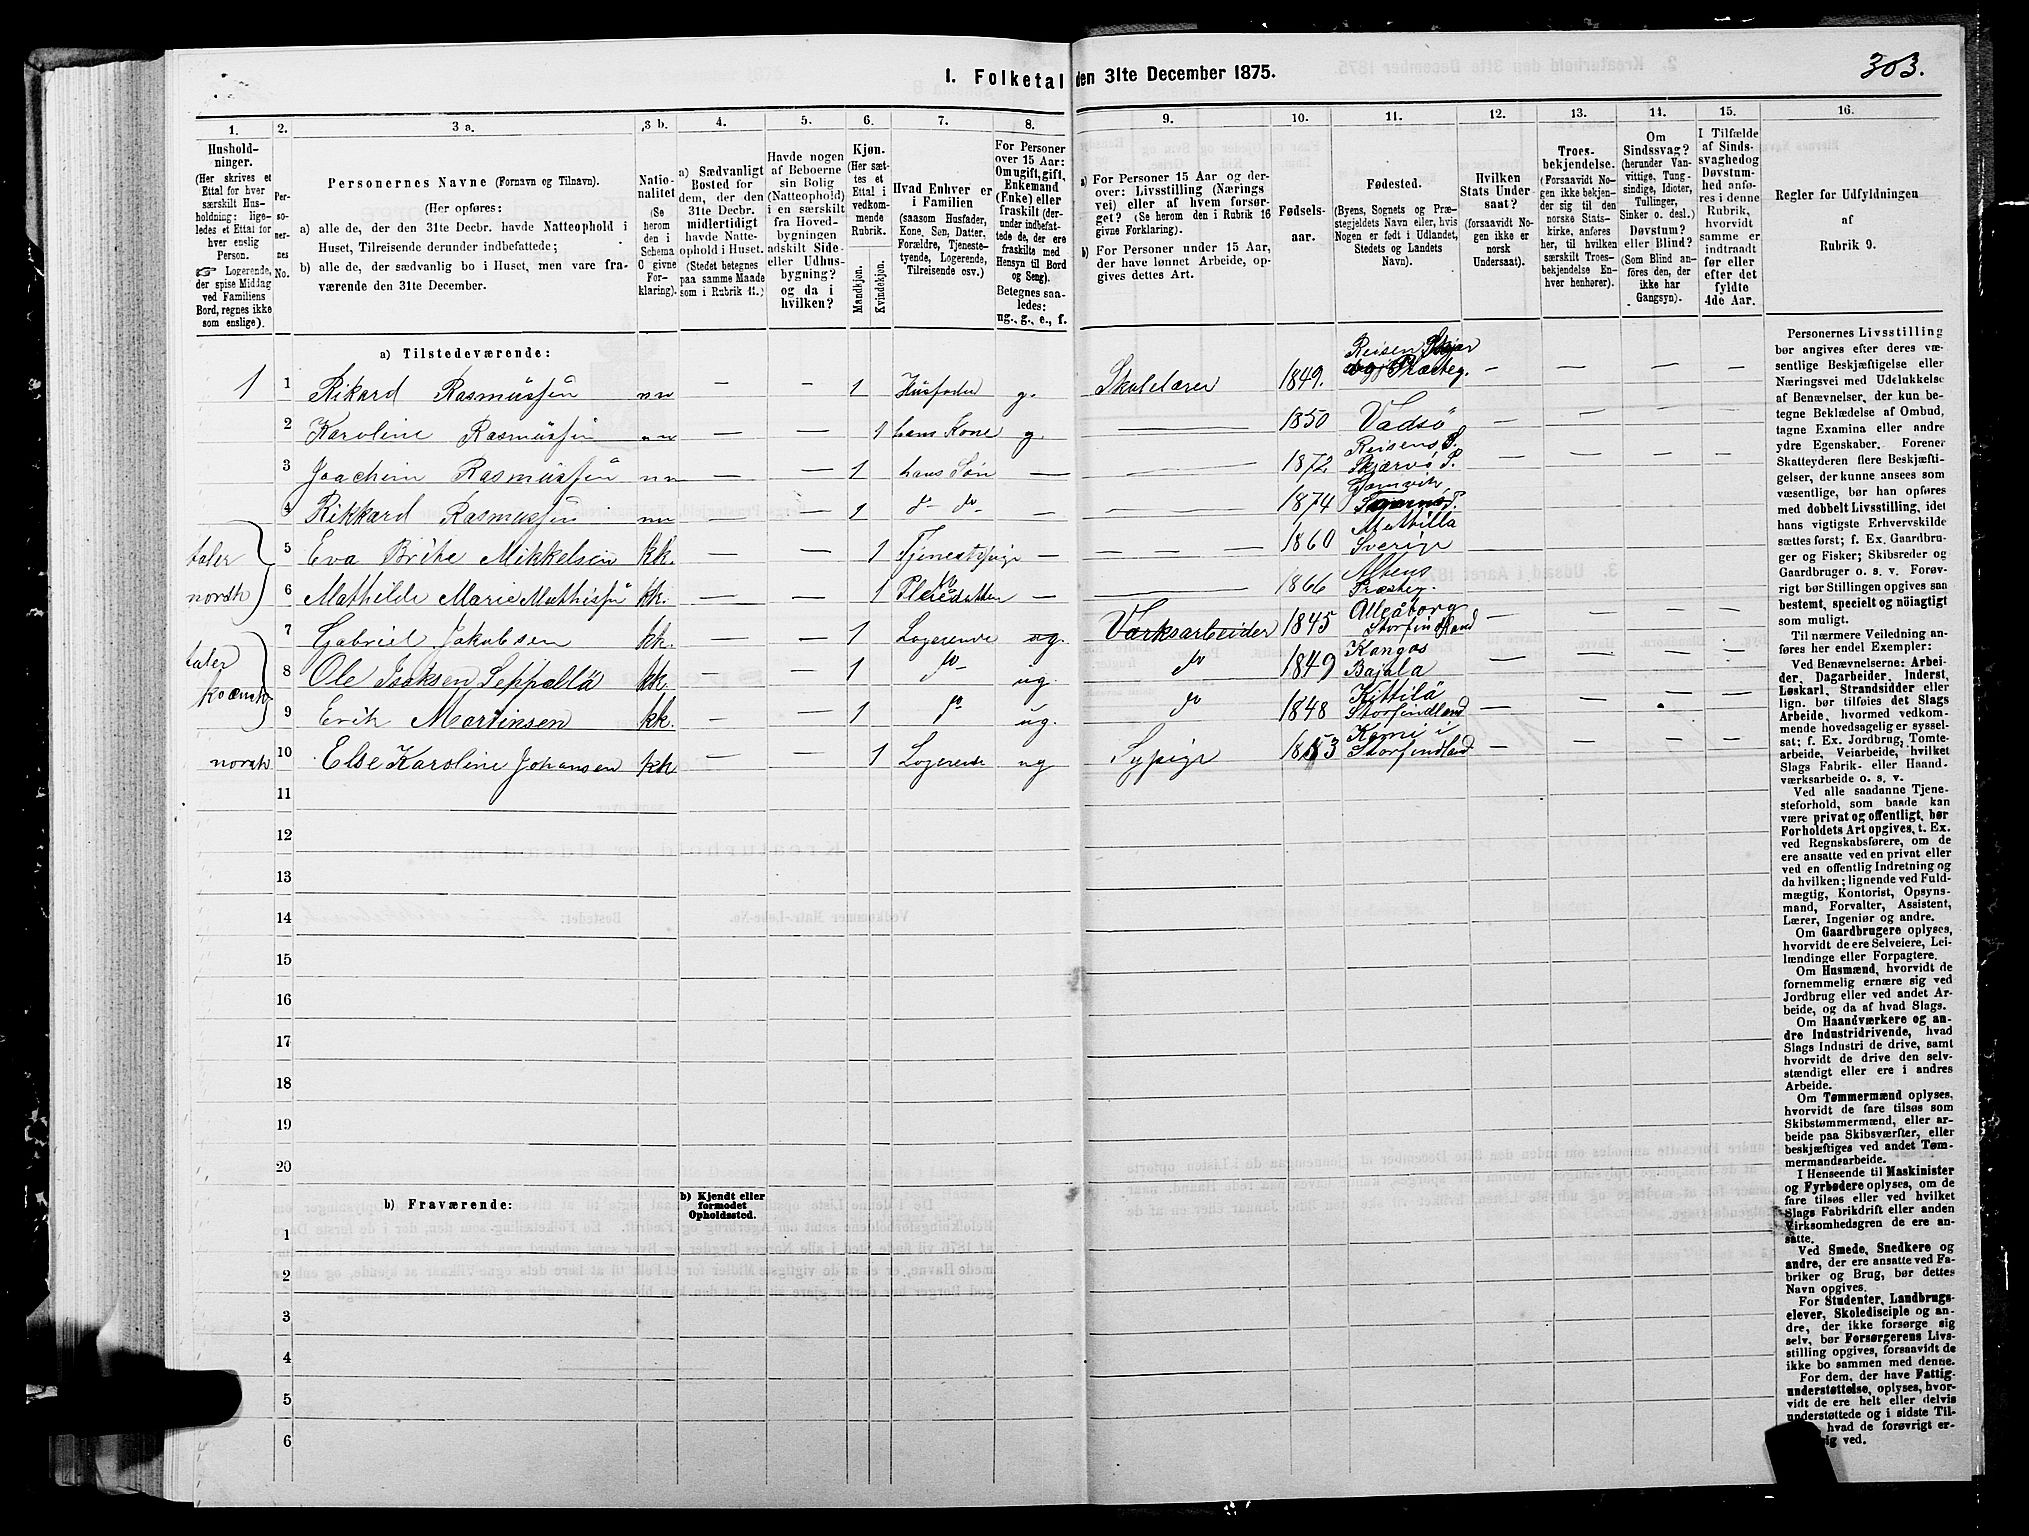 303.
1. Folketal den 31te December 1875.
1. 2. 3 a. 3 b. 4. 5. 6. 7. 8. 9. 10. 11. 12. 13. 14. 15. 16.
Hushold-
ninger.
(Her skrives et
Ettal for hver
særskilt Hus-
holdning: lige-
ledes et Ettal for
hver enslig
Person.
☞ Logerende,
der spise Middag
ved Familiens
Bord, regnes ikke
som enslige).
Per-
so-
ner-
nes
No.
Personernes Navne (Fornavn og Tilnavn).
(Her opføres:
a) alle de, der den 31te Decbr. havde Natteophold i
Huset, Tilreisende derunder indbefattede;
b) alle de, der sædvanlig bo i Huset, men vare fra-
værende den 31te December.
Natio-
nalitet
(Se
herom
den i
Schema
C givne
For-
klaring).
a) Sædvanligt
Bosted for
dem, der den
31te Decbr.
midlertidigt
havde Natte-
ophold i Huset.
(Stedet betegnes
paa samme Maade
som i Rubrik 11.)
Havde nogen
af Beboerne
sin Bolig
(Natteophold)
i en særskilt
fra Hoved-
bygningen
adskilt Side-
eller Udhus-
bygning?
og da i
hvilken?
Kjøn.
(Her sæt-
tes et
Ettal i
vedkom-
mende
Rubrik.
Mandkjøn.
Kvindekjøn.
Hvad Enhver er
i Familien
(saasom Husfader,
Kone, Søn, Datter,
Forældre, Tjeneste-
tyende, Logerende,
Tilreisende osv.)
For Personer
over 15 Aar:
Om ugift, gift,
Enkemand
(Enke) eller
fraskilt (der-
under indbefat-
tede de, der ere
fraskilte med
Hensyn til Bord
og Seng).
Betegnes saa-
ledes:
ug., g., e., f.
a) For Personer 15 Aar og der-
over: Livsstilling (Nærings
vei) eller af hvem forsør-
get? (Se herom den i Rubrik 16
givne Forklaring).
b) For Personer under 15 Aar,
der have lønnet Arbeide, op-
gives dettes Art.
Fødsels-
aar.
Fødested.
(Byens, Sognets og Præ-
stegjeldets Navn eller, hvis
Nogen er født i Udlandet,
Stedets og Landets
Navn).
Hvilken
Stats Under-
saat?
(forsaavidt No-
gen ikke er
norsk
Undersaat).
Troes-
bekjendelse.
(Forsaavidt No-
gen ikke bekjen-
der sig til den
norske Stats-
kirke, anføres
her, til hvilken
særskilt Troes-
bekjendelse En-
hver henhører).
Om
Sindssvag?
(herunder Van-
vittige, Tung-
sindige, Idioter,
Tullinger,
Sinker o. desl.)
Døvstum?
eller Blind?
(Som Blind an-
føres den, der
ikke har
Gangsyn).
I Tilfælde
af Sinds-
svaghed og
Døvstum-
hed anfø-
res i denne
Rubrik,
hvorvidt
samme er
indtraadt
før eller
efter det
fyldte
4de Aar.
Regler for Udfyldningen
af
Rubrik 9.
a) Tilstedeværende:
1 1 Rikard Rasmussen nn — — 1 Husfader g. Skolelærer 1849. Reisen Skjær Præsteg. — — — —
2 Karoline Rasmussen nn — — 1 hans Kone g. 1850 Vadsö — — — —
3 Joachim Rasmussen nn — — 1 hans Søn — 1872 Reisens S. Skjærvö P. — — — —
4 Rikkard Rasmussen nn — — 1 do do — 1874 — — — —
taler norsk
5 Eva Brite Mikkelsen kk. — — 1 Tjenestepige — 1860 Sverige — — — —
6 Mathilde Marie kk. — — 1 Pleiedatter — 1866 Altens Præsteg. — — — —
taler kvænsk
7 Gabriel Jakobsen kk. — — 1 Logerende ug. Værksarbeider 1845 Storfindland — — — —
8 Ole Isaksen Seppællä kk. — — 1 do ug. do 1849 Kangos Bajala — — — —
9 Erik Martinsen kk. — — 1 do ug. do 1848 Kittilä Storfindland — — — —
norsk 10 Else Karoline Johansen kk — — 1 Logerende ug Sypige 1853 Kemi i Storfindland — — — —
11
12
13
14
15
16
17
18
19
20
b) Fraværende:
b) Kjendt eller
formodet
Opholdssted.
1
2
3
4
5
6
Personernes Livsstilling
bør angives efter deres væ-
sentlige Beskjæftigelse eller
Næringsvei med Udelukkelse
af Benævnelser, der kun be-
tegne Beklædelse af Ombud,
tagne Examina eller andre
ydre Egenskaber. Forener
Skatteyderen flere Beskjæfti-
gelser, der kunne ansees som
væsentlige, bør han opføres
med dobbelt Livsstilling, idet
hans vigtigste Erhvervskilde
sættes først; f. Ex. Gaardbru-
ger og Fisker; Skibsreder og
Gaardbruger o. s. v. Forøv-
rigt bør Stillingen opgives saa
bestemt, specielt og nöiagtigt
som muligt.
Til nærmere Veiledning an-
føres her endel Exempler:
Ved Benævnelserne: Arbei-
der, Dagarbeider, Inderst,
Løskarl, Strandsidder eller
lign. bør tilføies det Slags
Arbeide, hvormed vedkom-
mende hovedsagelig er syssel-
sat; f. Ex. Jordbrug, Tomte-
arbeide, Veiarbeide, hvilket
Slags Fabrik- eller Haand-
værksarbeide o. s. v.
Ved alle saadanne Tjene-
steforhold, som baade kan
være privat og offentligt, bør
Forholdets Art opgives, t. Ex.
ved Regnskabsførere, om de
ere ansatte ved en privat eller
ved en offentlig Indretning og
da hvilken; lignende ved Fuld-
mægtig, Kontorist, Opsyns-
mand, Forvalter, Assistent,
Lærer, Ingeniør og andre.
Om Gaardbrugere oplyses,
hvorvidt de ere Selveiere, Lei-
lændinge eller Forpagtere.
Om Husmænd, hvorvidt de
fornemmelig ernære sig ved
Jordbrug eller ved andet Ar-
beide, og da af hvad Slags.
Om Haandværkere og an-
dre Industridrivende, hvad
Slags Industri de drive, samt
hvorvidt de drive den selv-
stændigt eller ere i andres
Arbeide.
Om Tømmermænd oplyses,
hvorvidt de fare tilsøs som
Skibstømmermænd, eller ar-
beide paa Skibsværfter, eller
beskjæftiges ved andet Tøm-
mermandsarbeide.
I Henseende til Maskinister
og Fyrbødere oplyses, om de
fare tilsøs eller ved hvilket
Slags Fabrikdrift eller anden
Virksomhedsgren de ere an-
satte.
Ved Smede, Snedkere og
andre, der ere ansatte ved Fa-
briker og Brug, bør dettes
Navn opgives.
For Studenter, Landbrugs-
elever, Skoledisciple og an-
dre, der ikke forsørge sig
selv, bør Forsørgerens Livs-
stilling opgives, forsaavidt de
ikke bo sammen med denne.
For dem, der have Fattig-
understøttelse, oplyses, hvor-
vidt de ere helt eller delvis
understøttede og i sidste Til-
hvad de forøvrigt er-
sig ved.